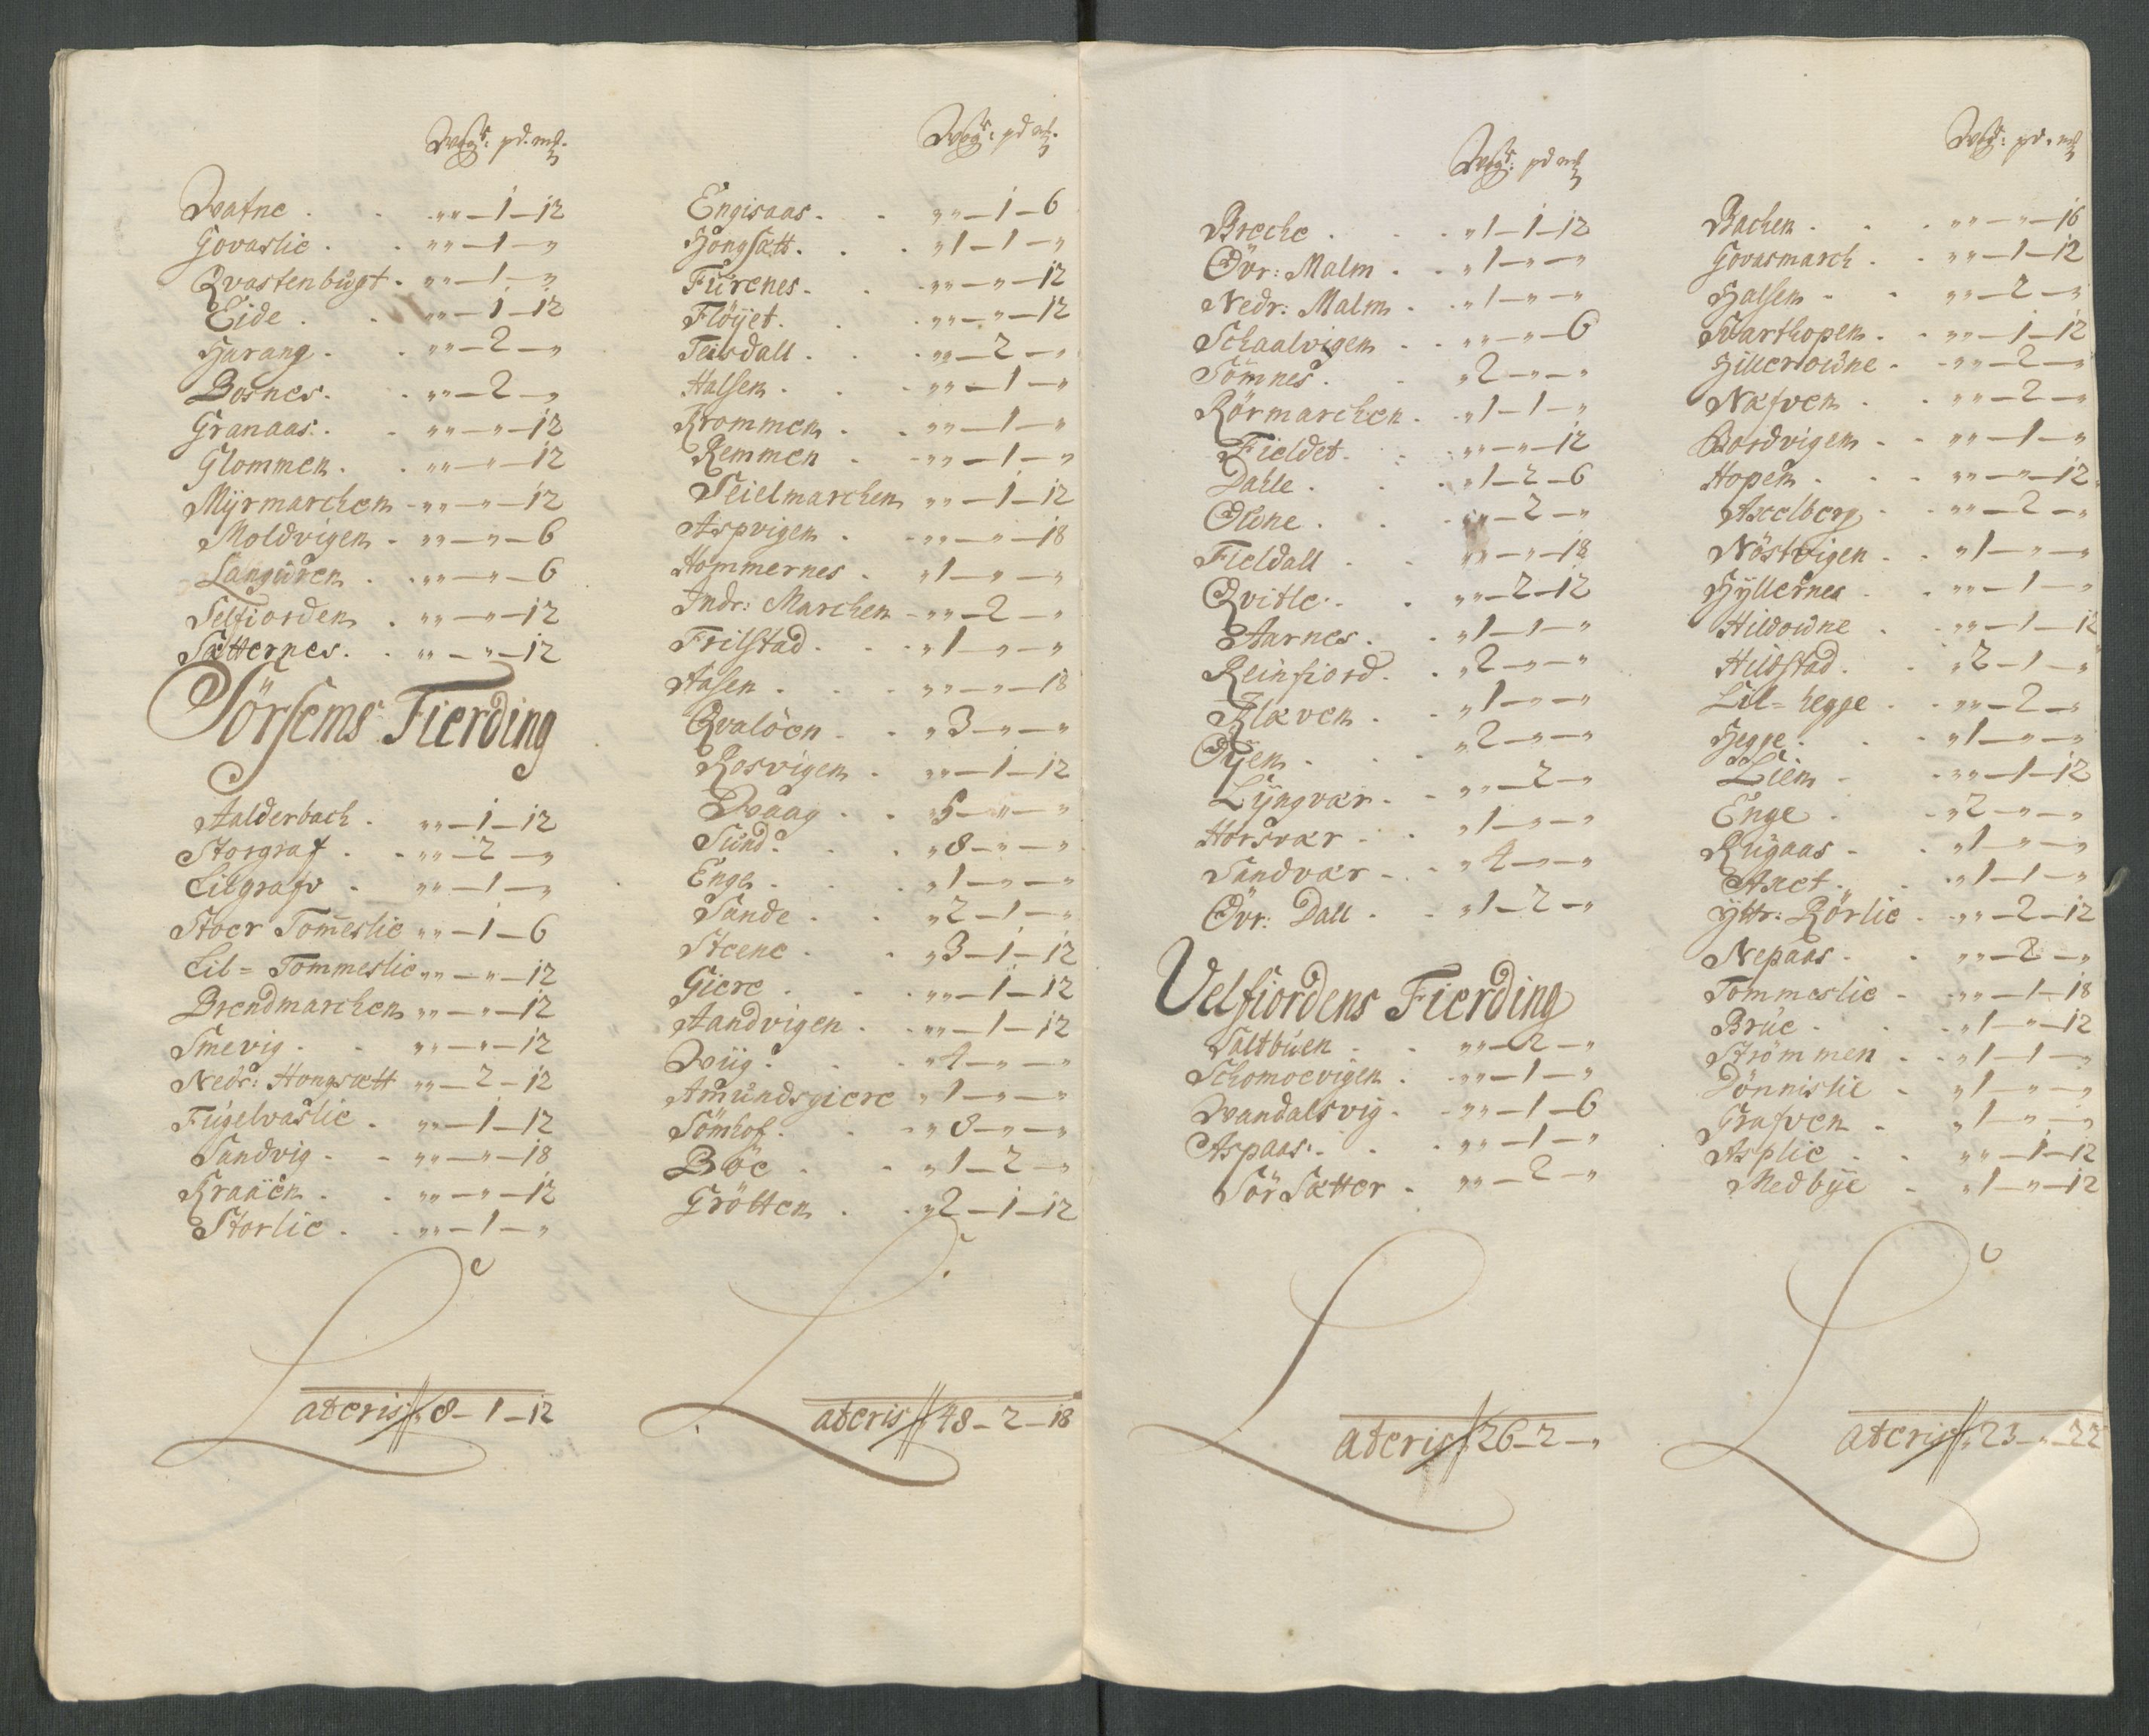 Wogr: pd. mk.
Wafne . . „„ – 1 – 12
Govaslie . . „„ – 1 – „
Qvastenbugt . „„ – 1 – „
Eide . . „„ – 1 – 12
Harang . . „„ – 2 – „
Bosnes . . „„ – 2 – „
Granaas . . „„ – „ – 12
Glommen . . „„ – „ – 12
Myrmarchen – „„ – „ – 12
Moldvigen – „„ – „ – 6
Languren . . „„ – „ – 6
Selfiorden . „„ – „ – 12
Sætternes . . „„ – „ – 12
Sörsems Fierding
Aalderbach . „„ – 1 – 12
Storgraf . . „„ – 2 – „
Lilgrafv . „„ – 1 – „
Stoer Tom̅eslie „„ – 1 – 6
Lil = Tommeslie „„ – „ – 12
Brendmarchen „„ – „ – 12
Smevig . . „„ – „ – 12
Nedr: Hongsætt „„ – 2 – 12
Fugelvaslie . „„ – 1 – 12
Sandvig . – „„ – „ – 18
Kraaen . . „„ – „ – 12
Storlie . . „„ – 1 – „
Lateris „ 8 – 1 – 12
Wogr: pd mk.
Engisaas . . „„ – 1 – 6
Hongsætt . . „ 1 – 1 – „
Furenes . . „„ – „ – 12
Flöyet . . „„ – „ – 12
Teisdall . . „„ – 2 – „
Halsen . . „„ – 1 – „
Krommen . . „„ – 1 – „
Remmen . „„ – 1 – „
Steielmarchen „„ – 1 – 12
Aspvigen . „„ – „ – 18
Hommernes . „ 1 – „ – „
Indr: Marchen – „„ – 2 – „
Frilstad . . „ 1 – „ – „
Aasen . . „„ – „ – 18
Qvalöen . . „ 3 – „ – „
Rosvigen . „„ – 1 – 12
Waag . . „ 5 – „ – „
Sund . . „ 8 – „ – „
Enge . . „ 1 – „ – „
Sande . . „ 2 – 1 – „
Steene . . „ 3 – 1 – 12
Giere . . „„ – 1 – 12
Aandvigen . „„ – 1 – 12
Wiig . . „ 4 – „ – „
Amundsgiere „ 1 – „ – „
Sömhof . . „ 8 – „ – „
Böe . . „ 1 – 2 – „
Grötten . . „ 2 – 1 – 12
Lateris „ 48 – 2 – 18
Wogr: pd mk
Breche . . „ 1 – 1 – 12
Övr: Malm . . „ 1 – „ – „
Nedr: Malm . „ 1 – „ – „
Schaalvigen . . „„ – „ – 6
Sömnes . . „ 2 – „ – „
Rörmarchen . „ 1 – 1 – „
Fieldet . . „„ – „ – 12
Dahle . . „ 1 – 2 – 6
Olvne . . „„ – 2 – „
Fieldall . . „„ – „ – 18
Qvitle . . „„ – 2 – 12
Aarnes . . „ 1 – 1 – „
Reinfiord . . „ 2 – „ – „
Klæven . . „ 1 – „ – „
Öyen . . „ 2 – „ – „
Lyngvær . – „„ – 2 – „
Horsvær . . „ 1 – „ – „
Sandvær . . „ 4 – „ – „
Övr: Dall . . „ 1 – 2 – „
Velfiordens Fierding
Saltbuen . . „„ – 2 – „
Schomoevigen . „„ – 1 – „
Wandalsvig . „„ – 1 – 6
Aspaas . . „„ – 1 – „
Sör Sætter . „„ – 2 – „
Lateris „ 26 – 2 – „
Wogr: pd. mk
Bachen . . „„ – „ – 16
Govasmarch . . „„ – 1 – 12
Halsen . . „„ – 2 – „
Svarthopen . . „„ – 1 – 12
Hillertowne . „„ – 2 – „
Næfven . . „„ – 2 – „
Bordvigen . . „„ – 1 – „
Hopen . . „„ – „ – 12
Axelberg . . „„ – 2 – „
Nöstvigen . . „ 1 – „ – „
Hyllernes . . „„ – 1 – „
Hildowne . „„ – 1 – 12
Hildstad . . „ 2 – 1 – „
Lil = hegge . . „„ – 2 – „
Hegge . . „ 1 – „ – „
Liem . . „„ – 1 – 12
Enge . . „ 2 – „ – „
Rugaas . . „ 1 – „ – „
Axet . . „ 1 – 1 – „
Yttr: Rörlie . „„ – 2 – 12
Nepaas . . „„ – 2 – „
Tommeslie . „„ – 1 – 18
Brue . . „ 1 – „ – 12
Strömmen . . „ 1 – 1 – „
Dönnislie . „ 1 – „ – „
Grafven . „ 1 – „ – „
Asplie . . „„ – 1 – 12
Medbye . „ 1 – „ – 12
Lateris „ 23 – „ – 22